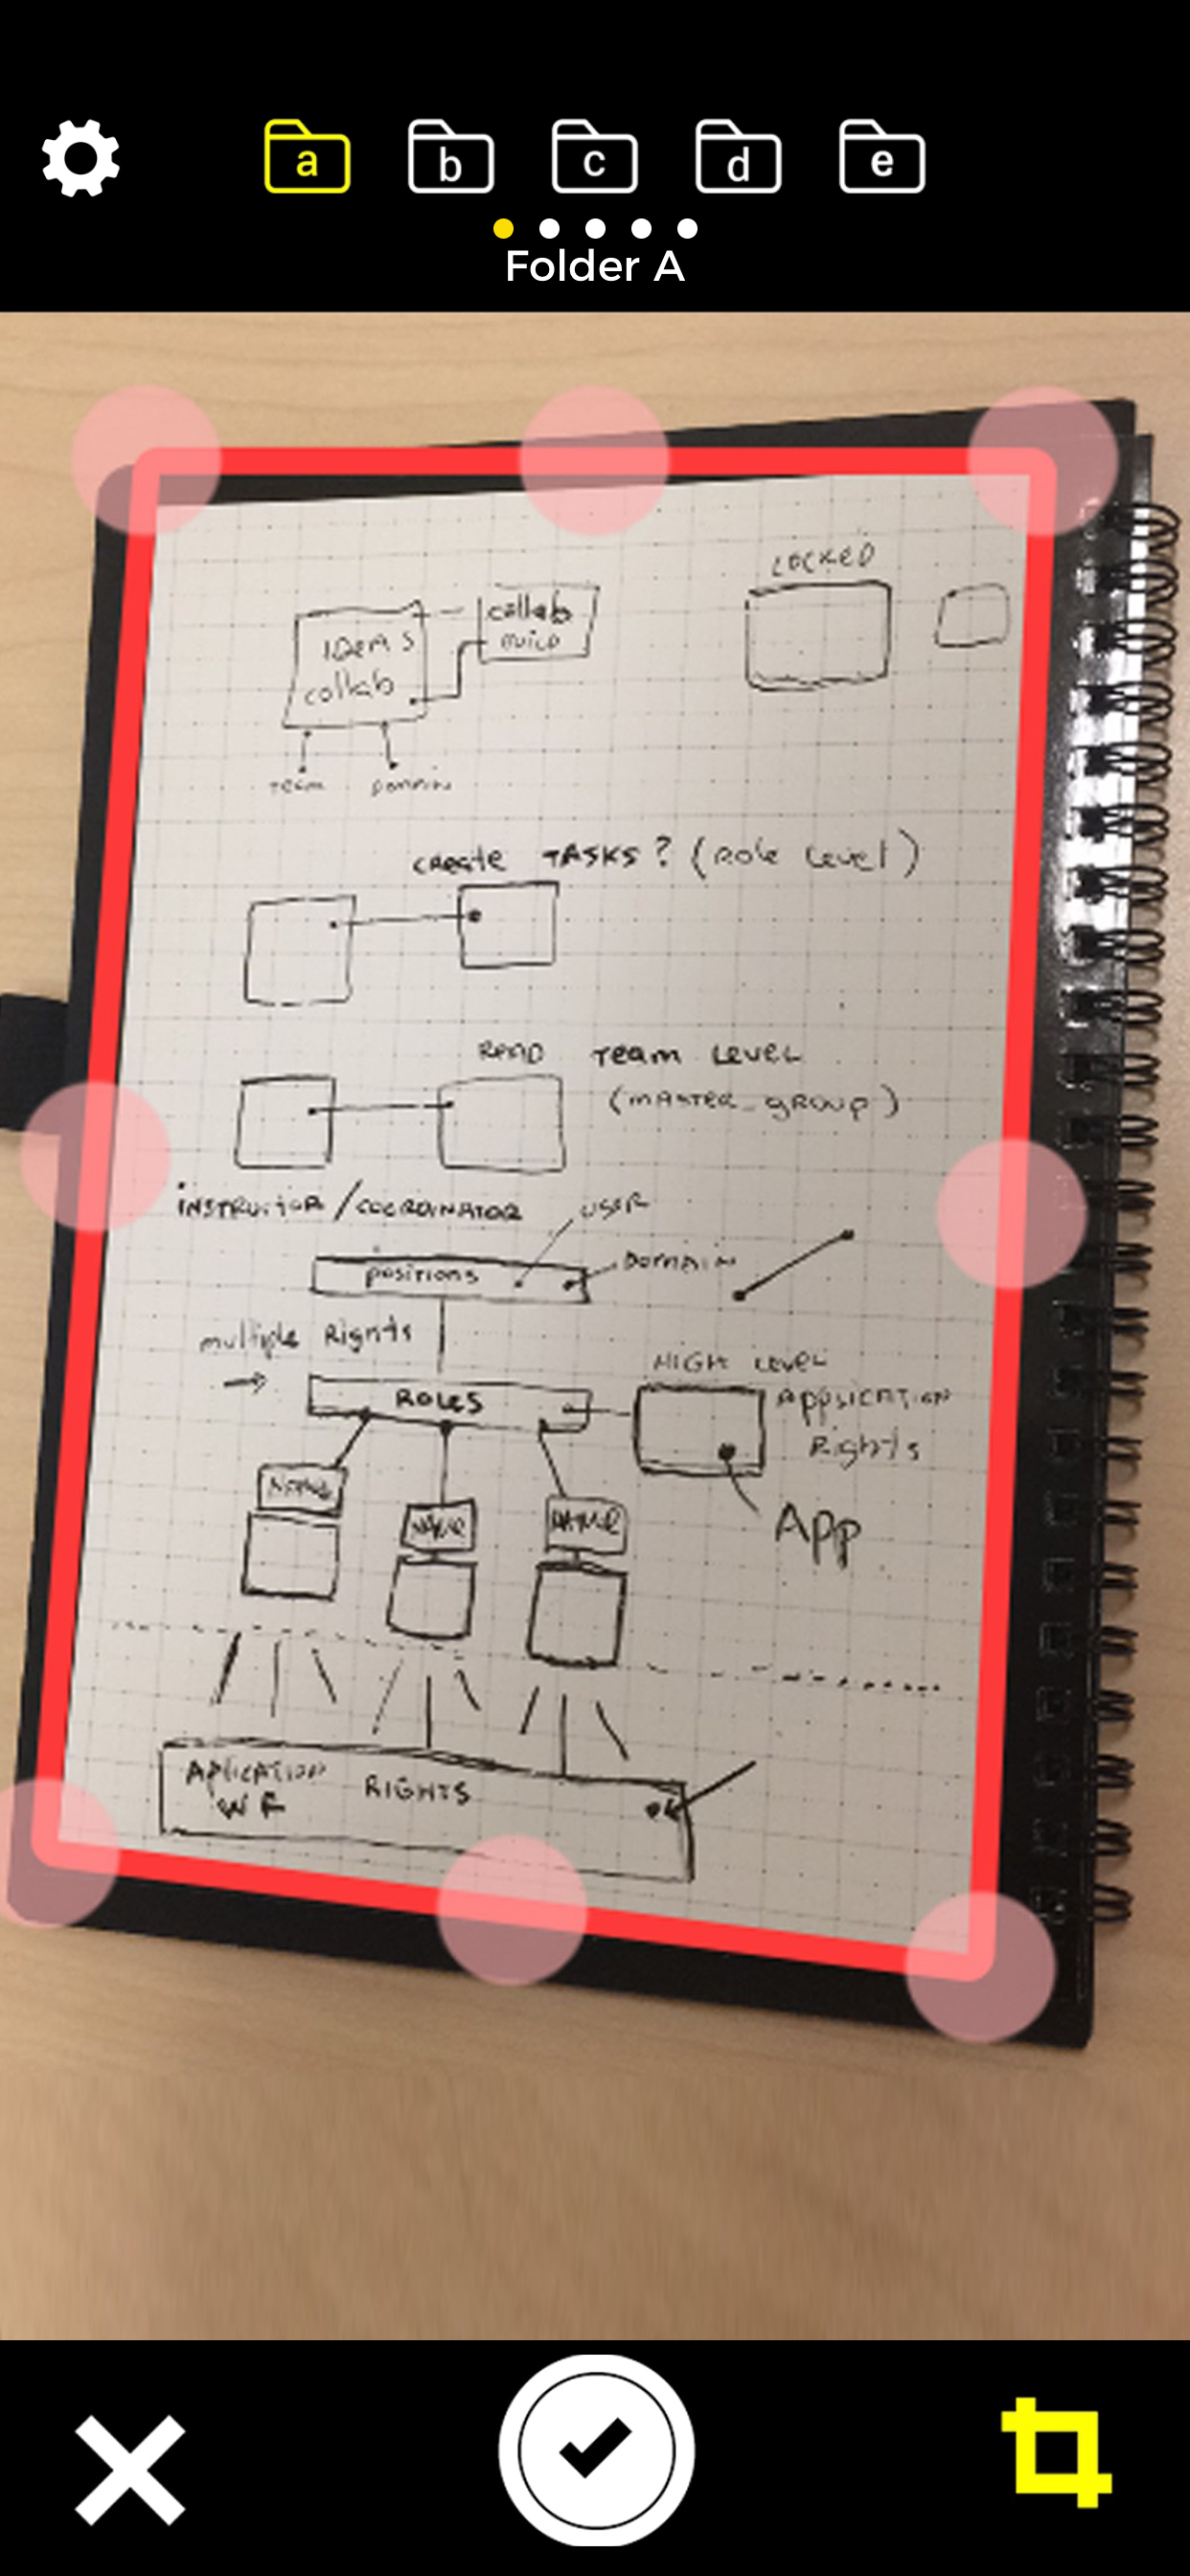 a b c d e
Folder A
LOCKED
collab
IDEAS
collab
Team Domain
create TASKS? (Role Level)
READ Team Level
(MASTER_group)
INSTRUCTOR/COORDINATOR USER
positions DOMAIN
multiple Rights
HIGH LEVEL
ROLES APPLICATION
Rights
NAME
NAME NAME
App
APLICATION RIGHTS
WF